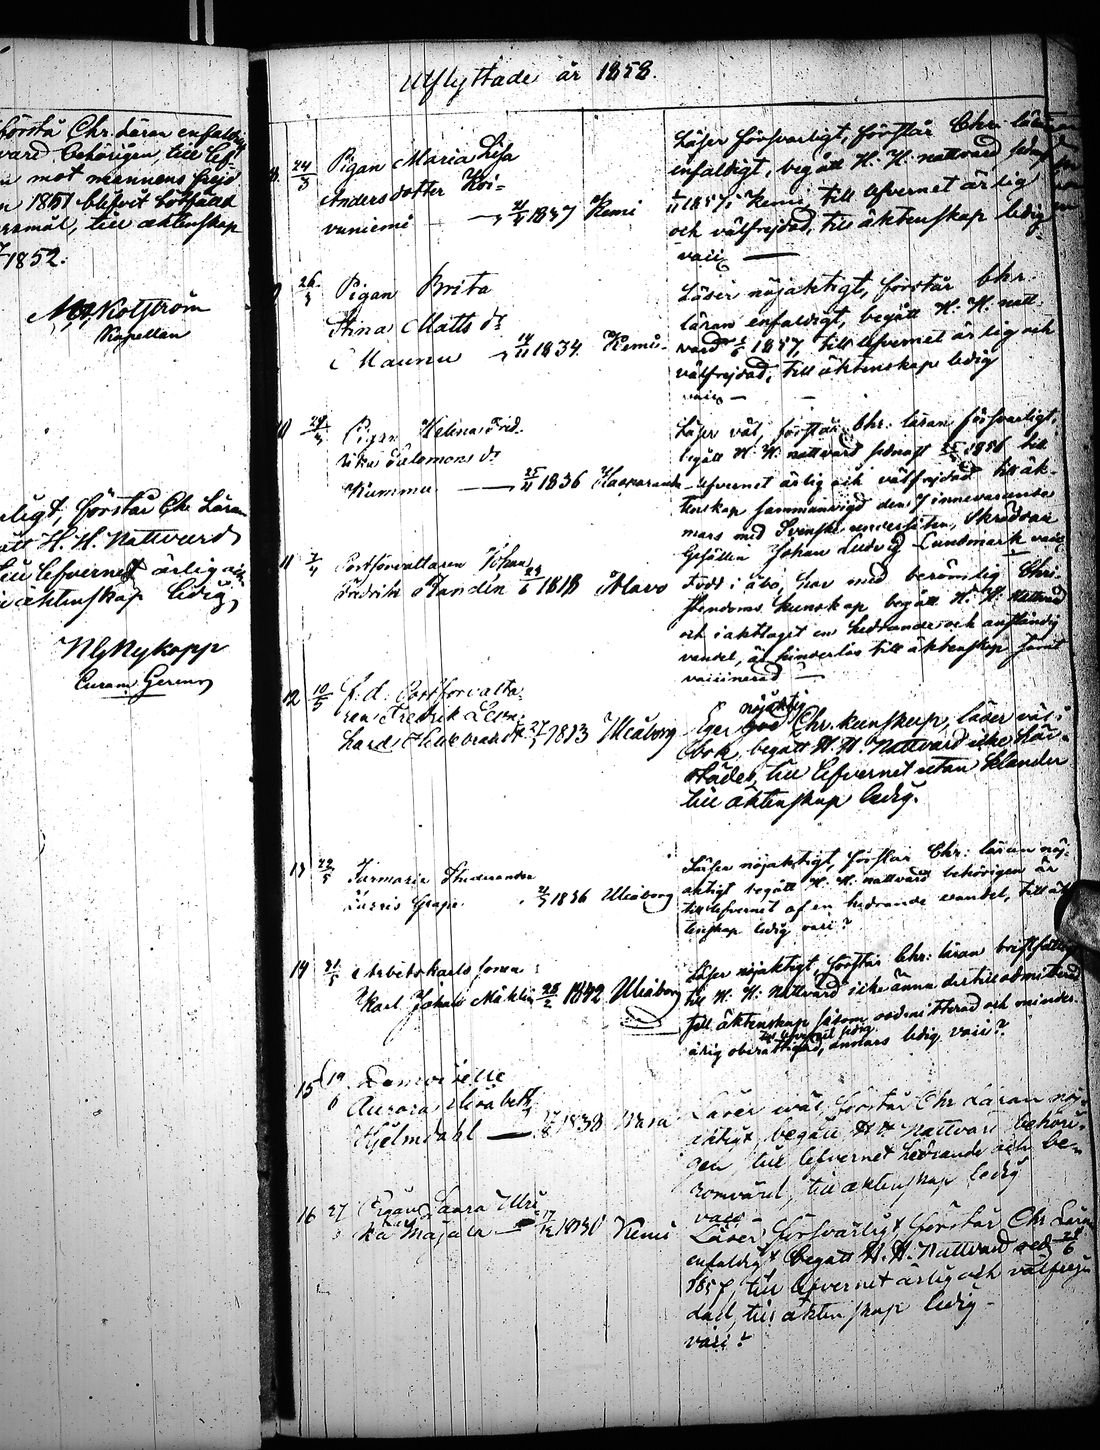 förstå Chr. Läran enfaldig
vard behörigen, till lef-
mot mennens frejd
1851 blifvit
till äktenskap
1852.
Kolström
Kapellan
förstår Chr Läran
H. H. Nattvard
till lefvernet ärlig och
äktenskap ledig,
NG Nykopp
Curam Gerens
Utflyttade år 1858.
24/3 Pigan Maria Lisa
Andersdotter Koi-
vuniemi — 1837 Kemi
Läser försvarligt, förstår Chr. läran
enfaldigt, begått H. H. nattvard sedn.
1857, i Kemi, till lefvernet ärlig
och välfrejdad, till äktenskap ledig
vari —
26/3 Pigan Brita
Stina Matts dr
Maunu 14/11 1834. Kemi
Läser nöjaktigt, förstår Chr.
läran enfaldigt, begått H. H. natt-
vard 1857, till lefvernet ärlig och
välfrejdad, till äktenskap ledig
vari —
10 Pigan Helena Fred-
rika Salomons dr
Kummu — 1836 Haaparanda
Läser väl, förstår Chr. läran försvarligt,
begått H. H. nattvard sednast 1856 till
lefvernet ärlig och välfrejdad till äk-
tenskap sammanvigd den 7 innevarande
mars med Svenske undersåten, Skräddare
Gesällen Johan Ludvig Lundmark vari
11 Postförvaltaren Johan
Fredrik Randelin 1818 Alavo
Född i Åbo, har med berömlig Chri-
stendoms kunskap begått H. H. Nattvard
och iakttagit en hedrande och anständig
vandel, är hinderlös till äktenskap samt
vaccinerad —
12 10/5 f. d. Postförvalta-
ren Fredrik Leon-
hard Hildebrandt 27/1 1813 Uleåborg
nöjaktig
Eger god Chr. kunskap, läser väl i
bok, begått H. H. Nattvard icke här-
städes, till lefvernet utan klander
till äktenskap ledig.
13 22/5 Farmacie Studeranden
Lars Grape 1836 Uleåborg
Läser nöjaktigt, förstår Chr: läran nöj-
aktigt begått H. H. nattvard behörigen är
till lefvernet af en hedrande vandel, till äk-
tenskap ledig vari?
14 31/5 Arbetskarls sonen
Karl Johan Mäklin 28/2 1842 Uleåborg
Läser nöjaktigt, förstår Chr: läran bristfälligt
till H. H. Nattvard icke ännu dertill admitterad
till äktenskap såsom oadmitterad och minder-
till lefvernet ledig
årig oberättigad, annars ledig vari?
15 19/6 Demoiselle
Aurora Elisabeth
Hjelmdahl — 1838 Wasa
Läser väl, förstår Chr Läran nöj-
aktigt, begått H H Nattvard behöri-
gen till lefvernet hedrande och be-
römvärd, till äktenskap ledig
vari —
16 27 Pigan Laara Ulri-
ka Majala — 17/12 1830 Kemi
Läser försvarligt förstår Chr Läran
enfaldigt begått H. H. Nattvard sed. 28/6
1857, till lefvernet ärlig och välfrej-
dad, till äktenskap ledig —
vari?